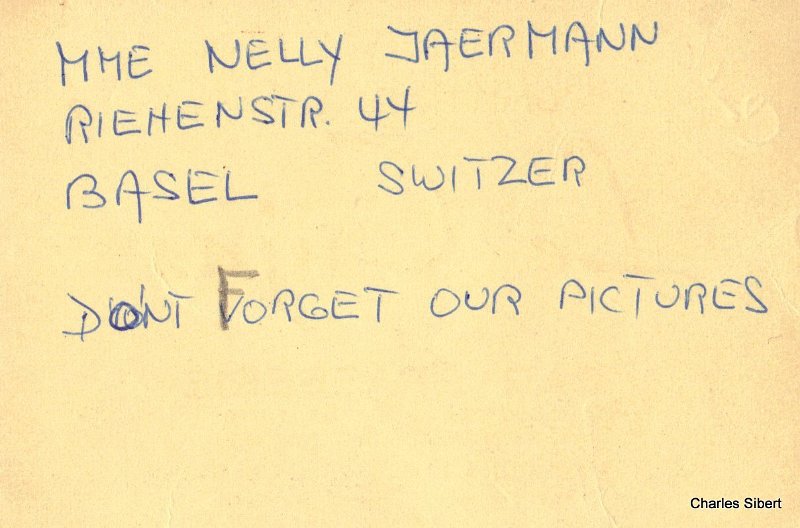 MME NELLY JAERMANN
RIEHENSTR. 44
BASEL SWITZER
DON'T FORGET OUR PICTURES
Charles Sibert